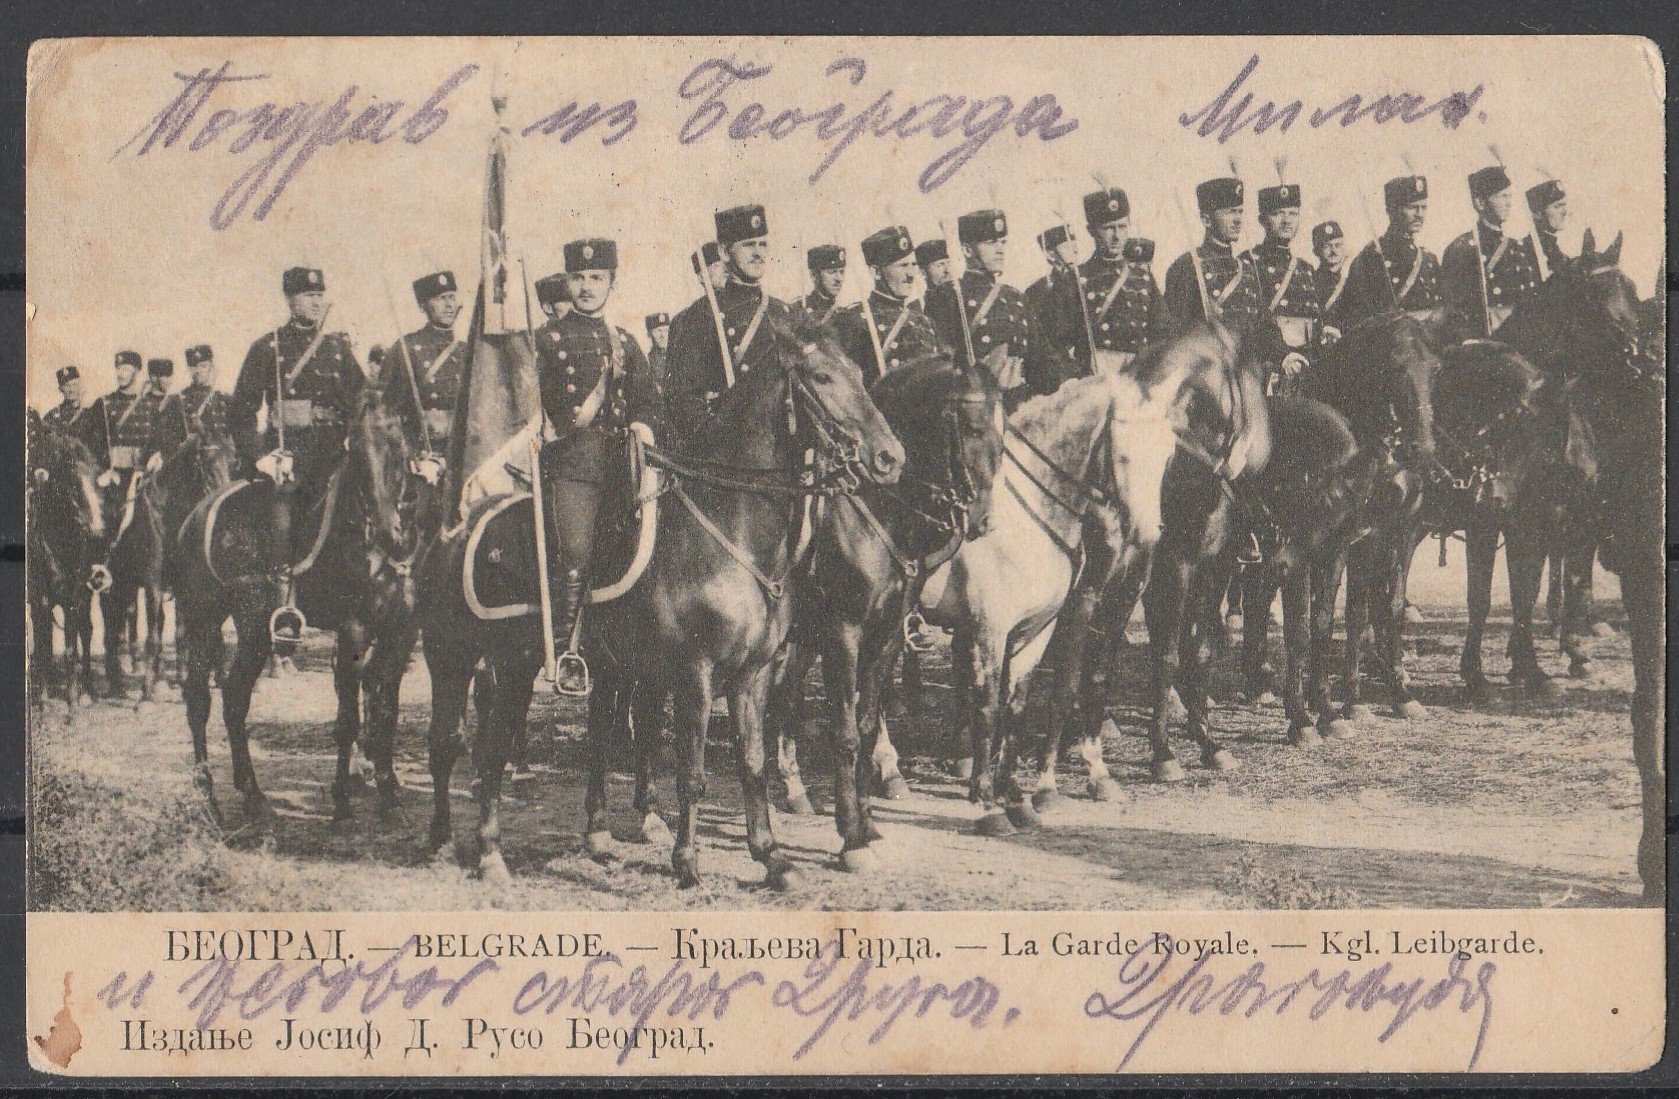 Поздрав из Београда Милан.
БЕОГРАД. — BELGRADE. — Краљева Гарда. — La Garde Royale. — Kgl. Leibgarde.
и његовог старог друга. Драгољуба
Издање Јосиф Д. Русо Београд.